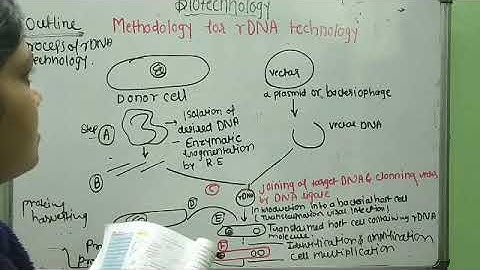 Biotechnology
Outline
Process of rDNA
technology.
Methodology for rDNA technology
Donor cell
vector
a plasmid or bacteriophage
Step A
Isolation of
desired DNA
- Enzymatic
fragmentation
by R.E
vector DNA
B
C
rDNA
Joining of target DNA & clonning vector
by DNA ligase
D
Introduction into a bacterial host cell
(transformation viral infection)
E
Transformed host cell containing rDNA
molecule
F
Identification & amplification
cell multiplication
protein
harvesting